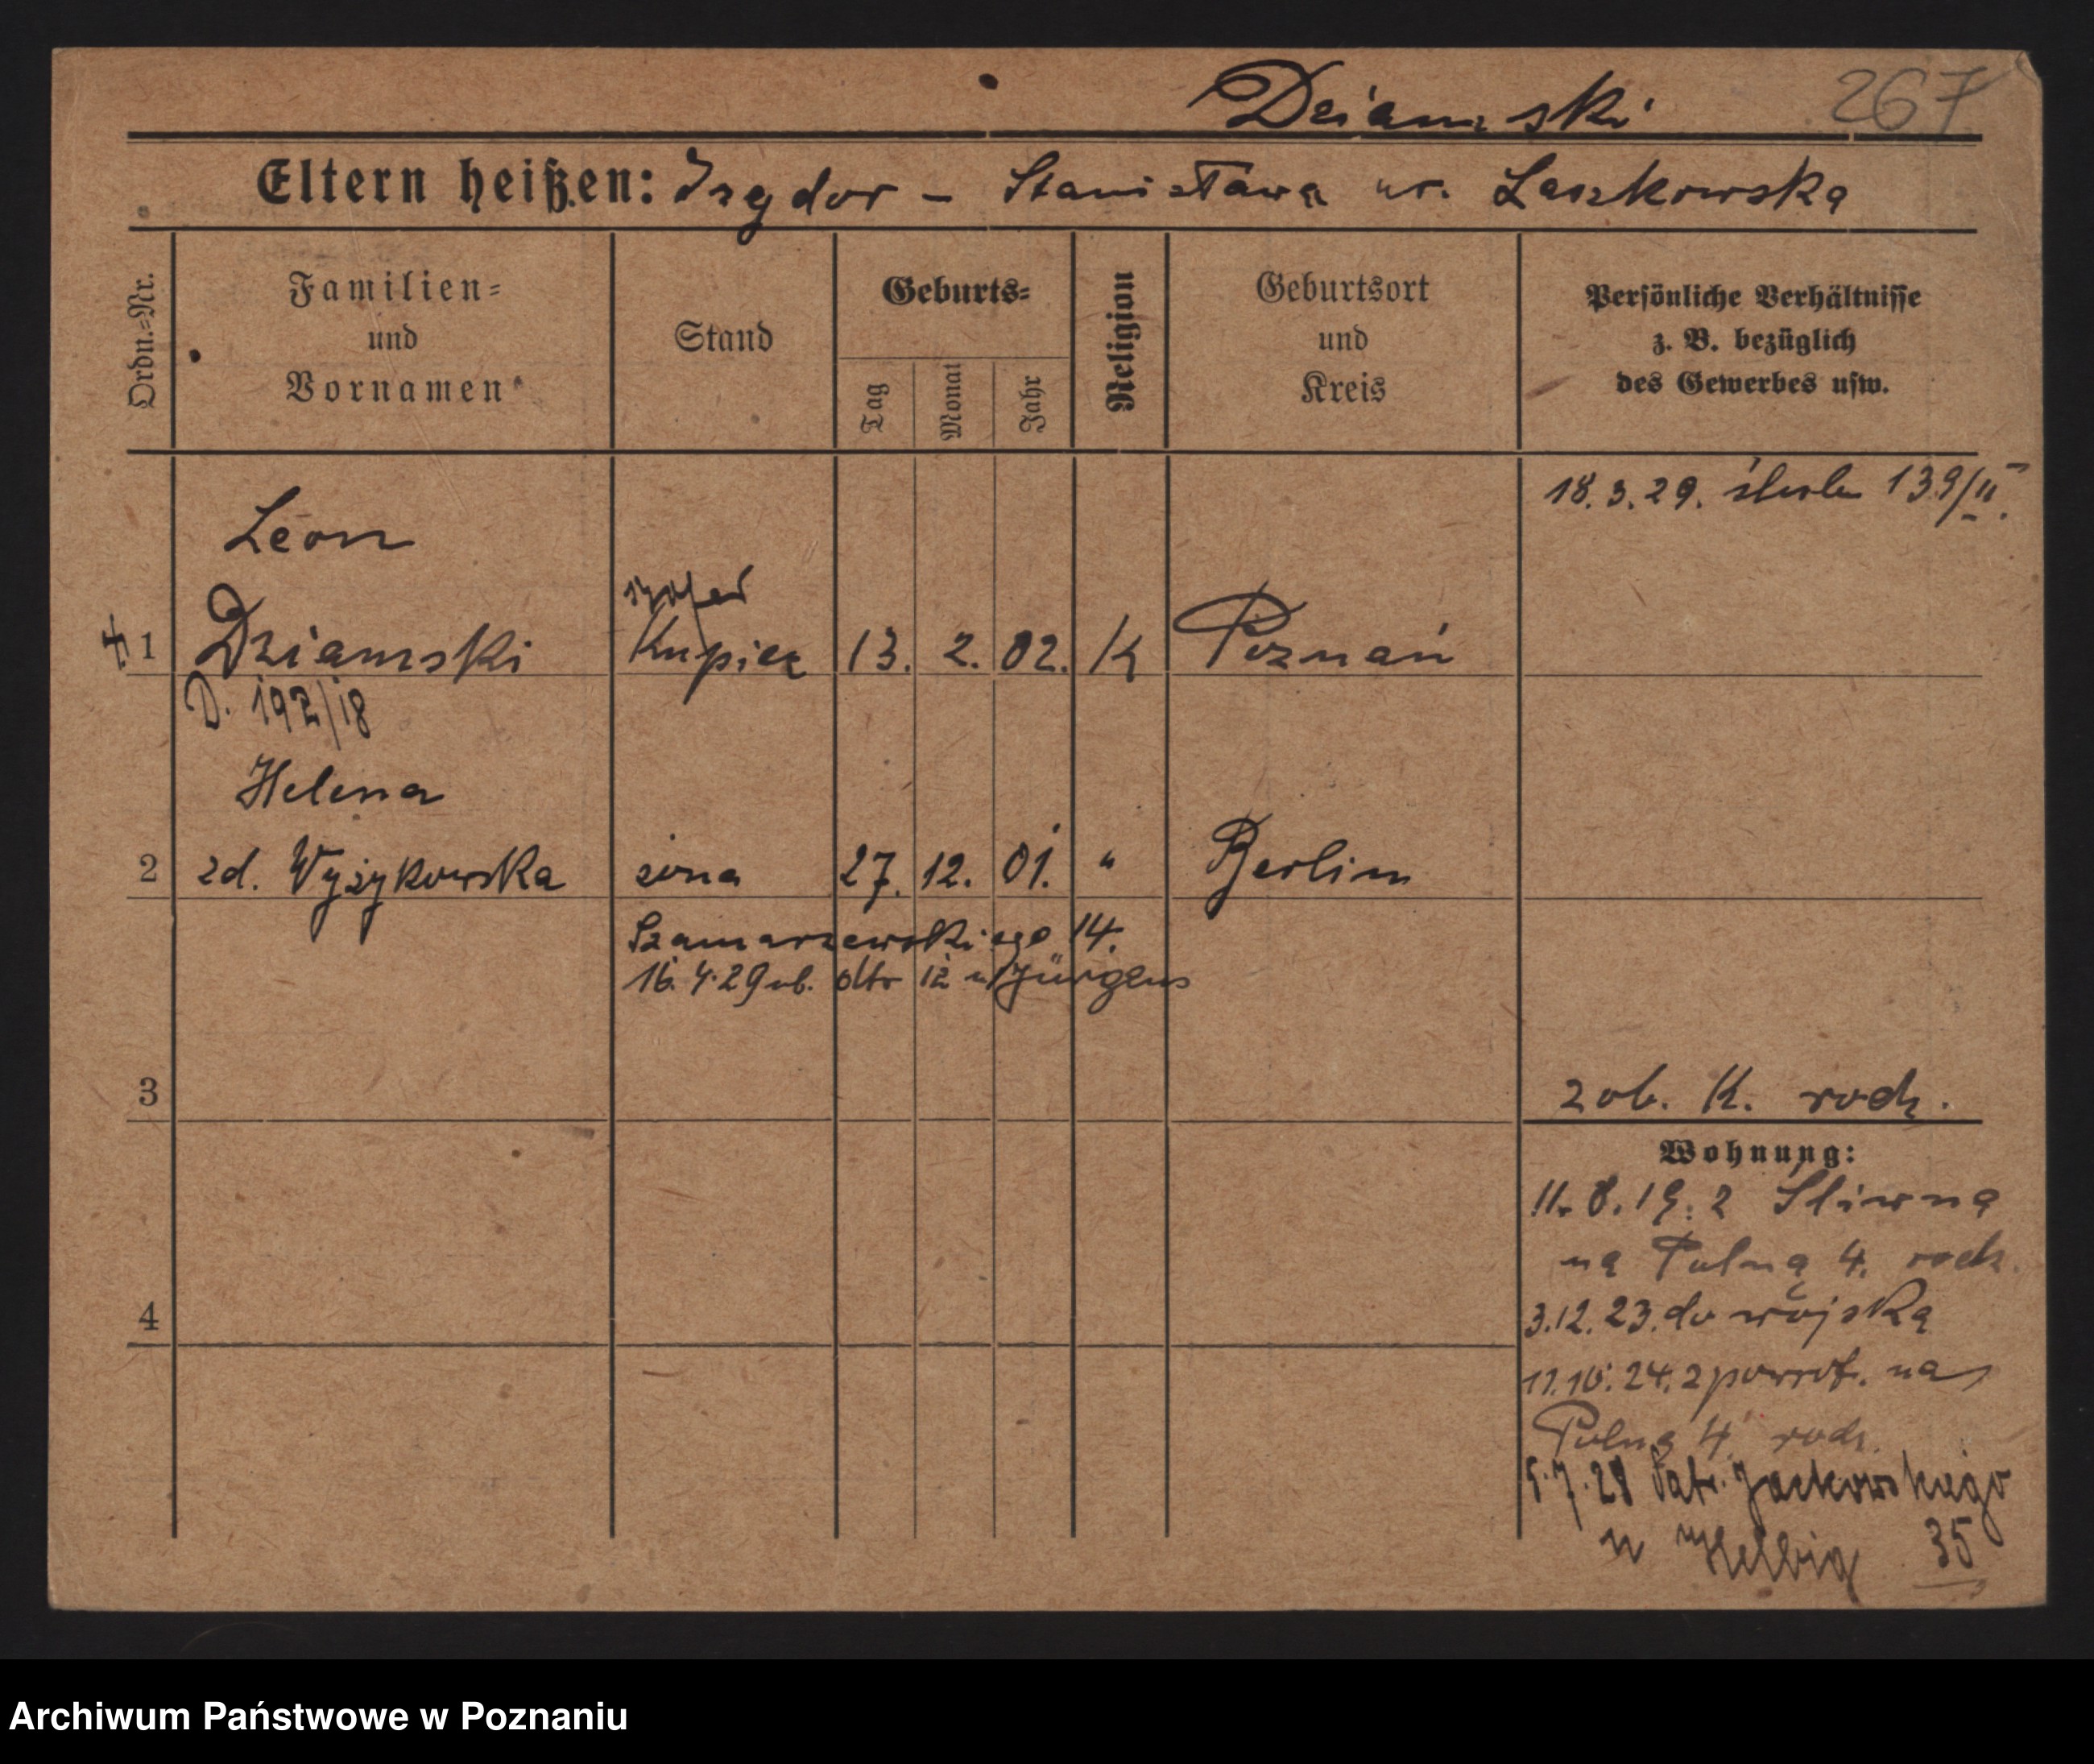 Dziamski 267
Eltern heißen: Izydor - Stanisława ur. Laszkowska
Ordn.-Nr.
Familien-
und
Vornamen
Stand
Geburts-
Tag
Monat
Jahr
Religion
Geburtsort
und
Kreis
Persönliche Verhältnisse
z. B. bezüglich
des Gewerbes usw.
18.3.29. 139/II.
Leon
szofer
1 Dziamski Kupiec 13. 2. 02. K Poznań
D. 192/18
Helena
2 zd. Wyżykowska żona 27. 12. 01. " Berlin
Szamarzewskiego 14.
16.4.29 ub. dtto 12 u/Jürgens
3
zob. K. rodz.
Wohnung:
11.8.19. z Śliwna
na Polną 4. rodz.
4
3.12.23. do wojska
17.10.24. z powrot. na
Polną 4 rodz.
5.7.28 Patr. Jackowskiego
u Helbig 35
Archiwum Państwowe w Poznaniu